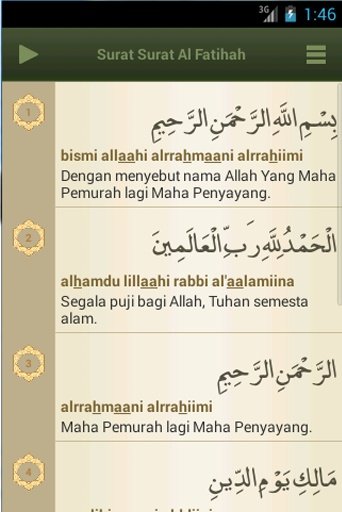 3G 1:46
Surat Surat Al Fatihah
1
بِسْمِ اللَّهِ الرَّحْمَنِ الرَّحِيمِ
bismi allaahi alrrahmaani alrrahiimi
Dengan menyebut nama Allah Yang Maha
Pemurah lagi Maha Penyayang.
2
الْحَمْدُ لِلَّهِ رَبِّ الْعَالَمِينَ
alhamdu lillaahi rabbi al'aalamiina
Segala puji bagi Allah, Tuhan semesta
alam.
3
الرَّحْمَنِ الرَّحِيمِ
alrrahmaani alrrahiimi
Maha Pemurah lagi Maha Penyayang.
4
مَالِكِ يَوْمِ الدِّينِ